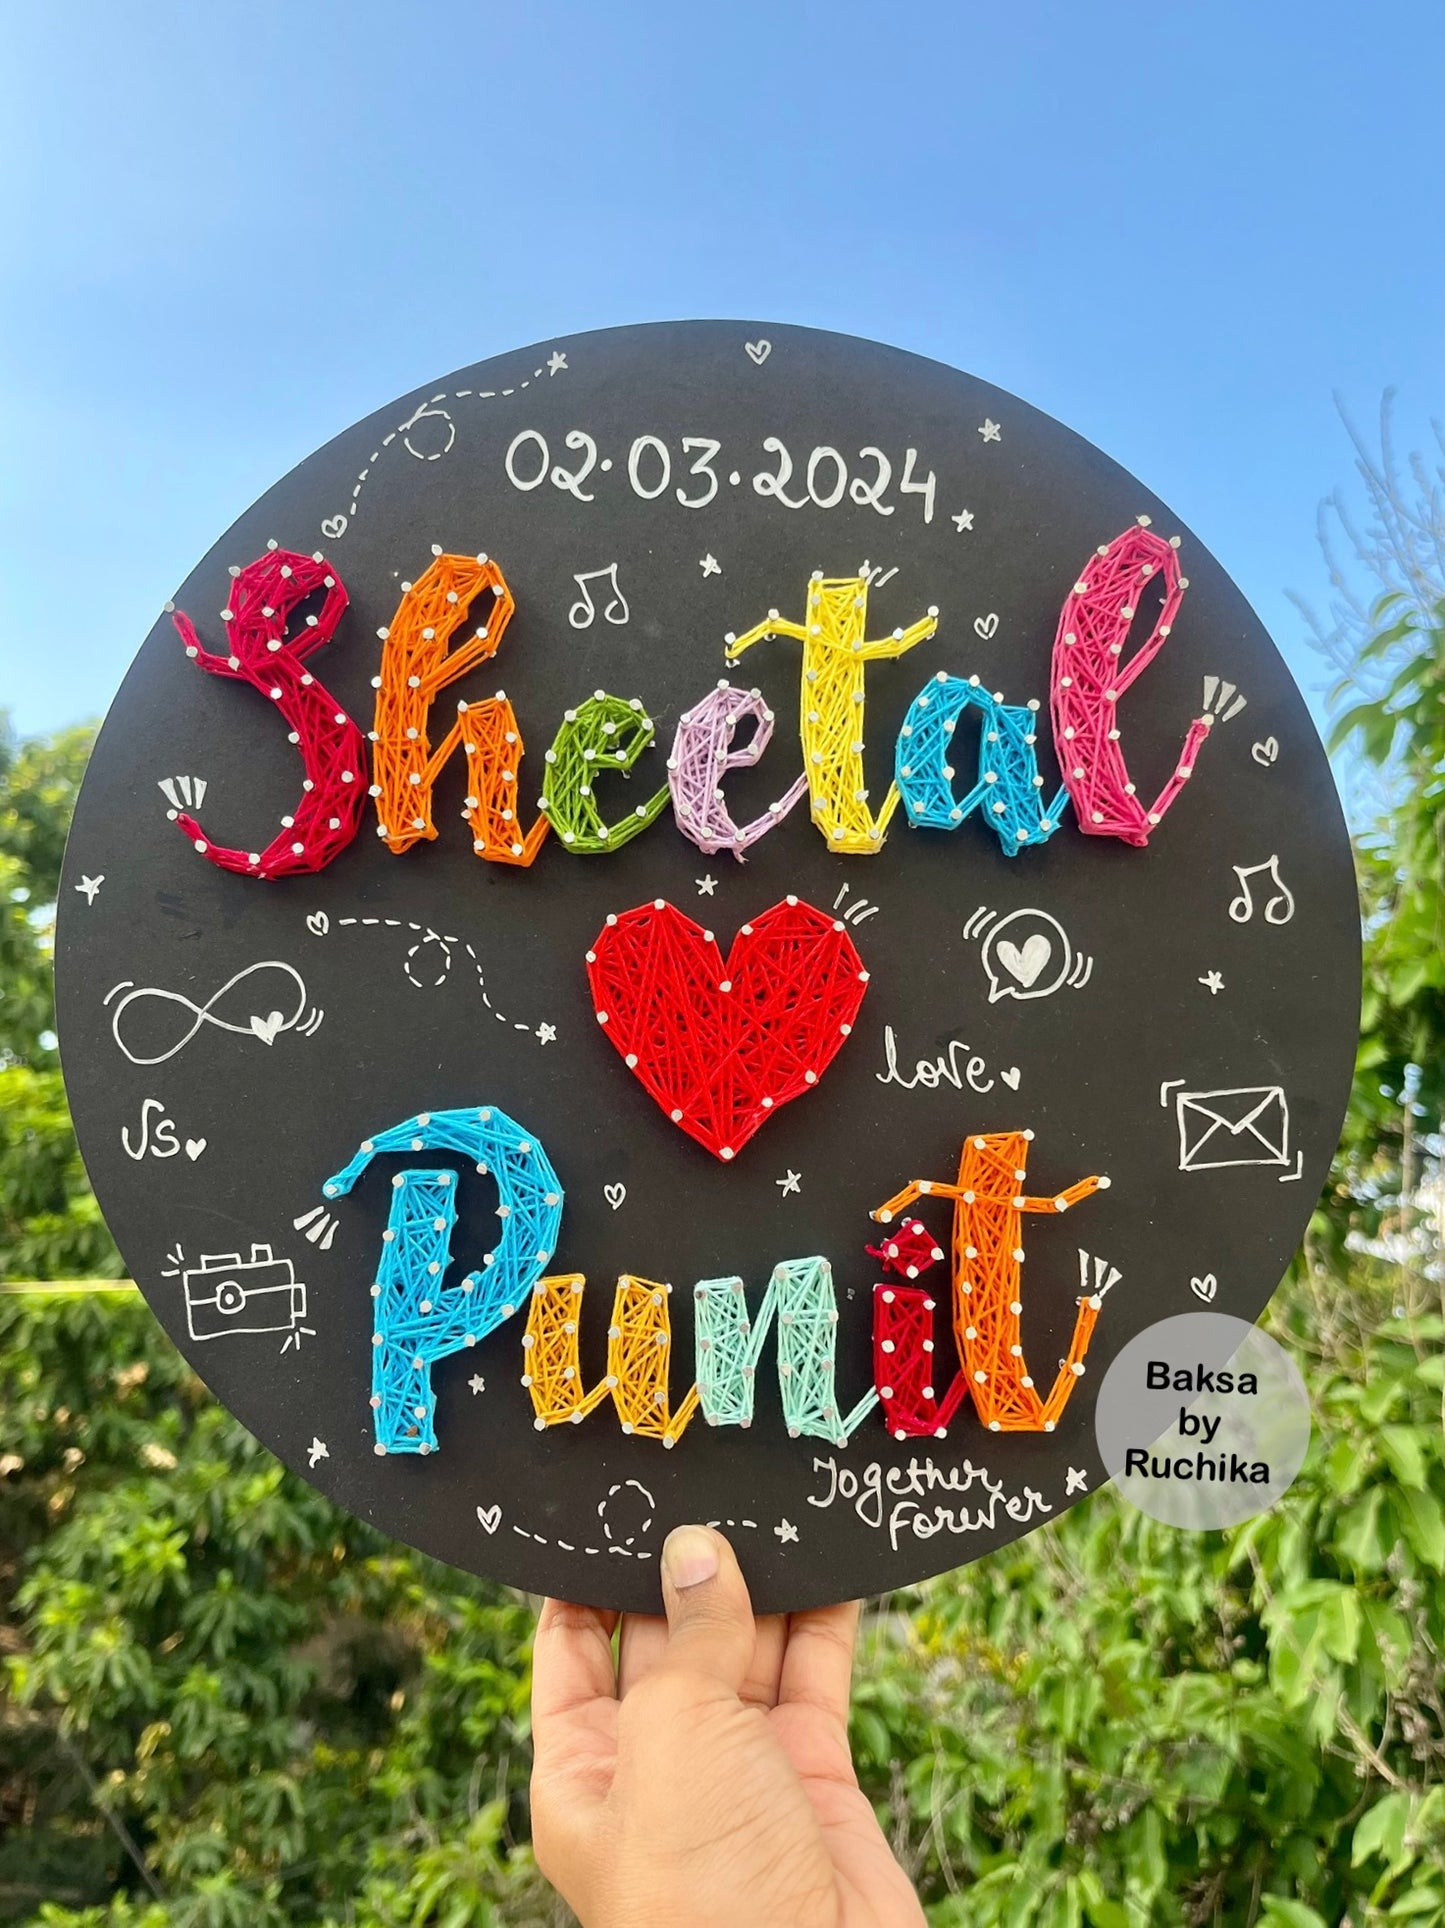 02.03.2024
Sheetal
love
Us
Punit
Together
Forever
Baksa
by
Ruchika